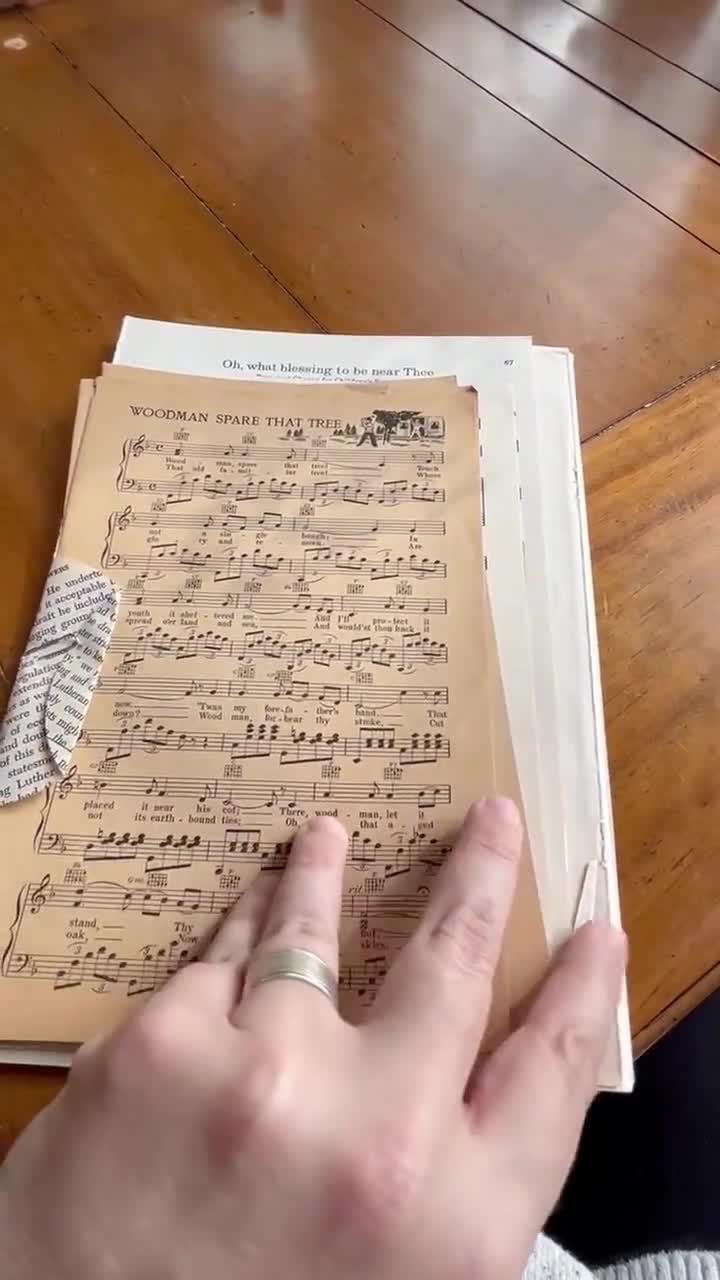 Oh, what blessing to be near Thee
67
WOODMAN SPARE THAT TREE
Wood - man, spare that tree! Touch
That old fa - mil - iar tree! Whose
not a sin - gle bough; In
glo - ry and re - nown Are
youth it shel - tered me, And I'll pro - tect it
spread o'er land and sea, And would'st thou hack it
now. 'Twas my fore - fa - ther's hand, That
down? Wood man, for - bear thy stroke, Cut
placed it near his cot; There, wood - man, let it
not its earth - bound ties; Oh, that a - ged
rit
stand, Thy
oak, Now
skies.
He undert
it acceptable
raft he include
ging groun
gulation
extendi
s as w
were th
of ec
and dou
of this d
statesm
ng Luther
Lutheran